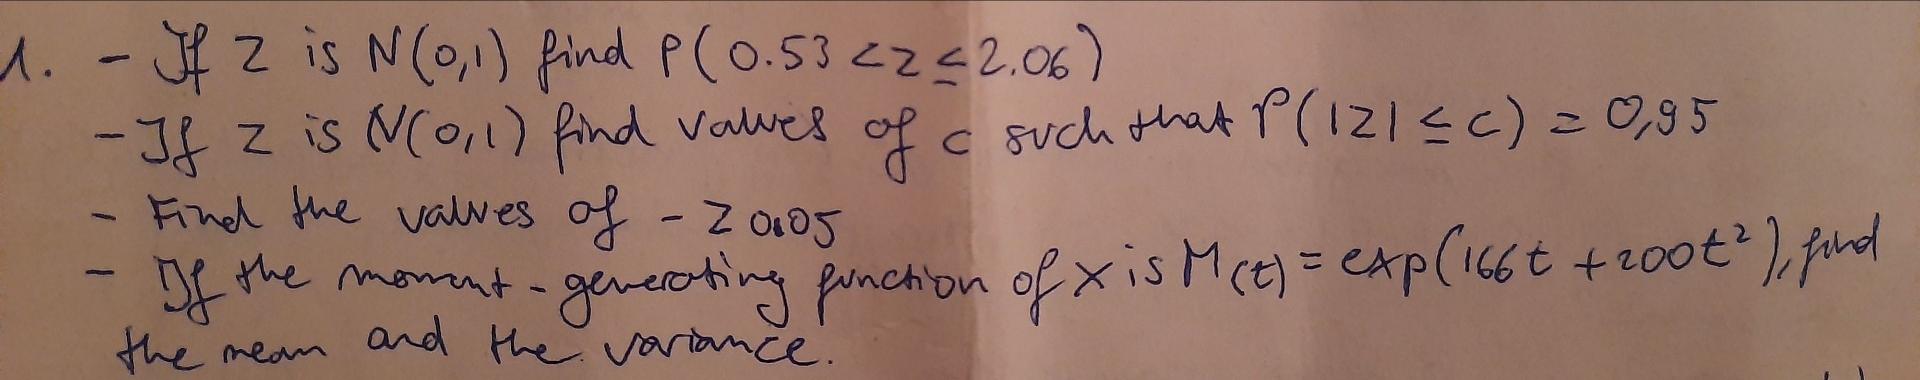 1. - If Z is N(0,1) find P(0.53 < z ≤ 2.06)
- If Z is N(0,1) find values of c such that P(|Z| ≤ c) = 0,95
- Find the values of - Z 0.05
- If the moment-generating function of X is M(t) = exp(166t + 200t²), find
the mean and the variance.